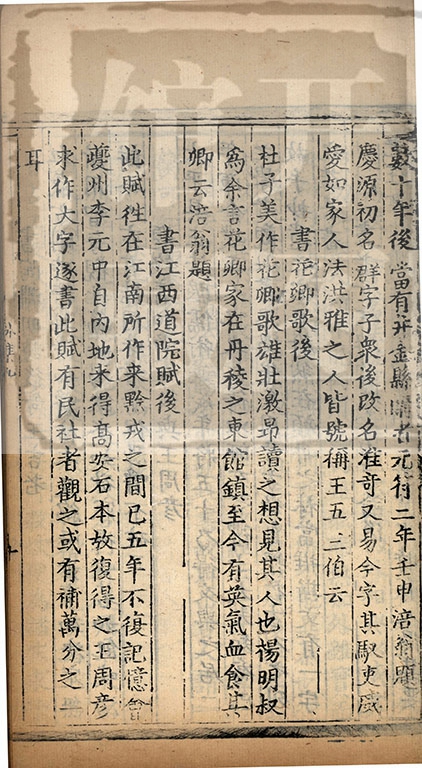 數十年後當有并金縣購者元符二年壬申涪翁題
慶源初名群字子衆後改名淮奇又易今字其馭吏威
愛如家人法洪雅之人皆號稱王五三伯云
書花卿歌後
杜子美作花卿歌雄壯激昂讀之想見其人也楊明叔
為余言花卿家在丹稜之東館鎮至今有英氣血食其
卿云涪翁題
書江西道院賦後
此賦徃在江南所作来黔戎之間已五年不復記憶會
夔州李元中自内地来得高安石本故復得之王周彦
求作大字遂書此賦有民社者觀之或有補萬分之
耳